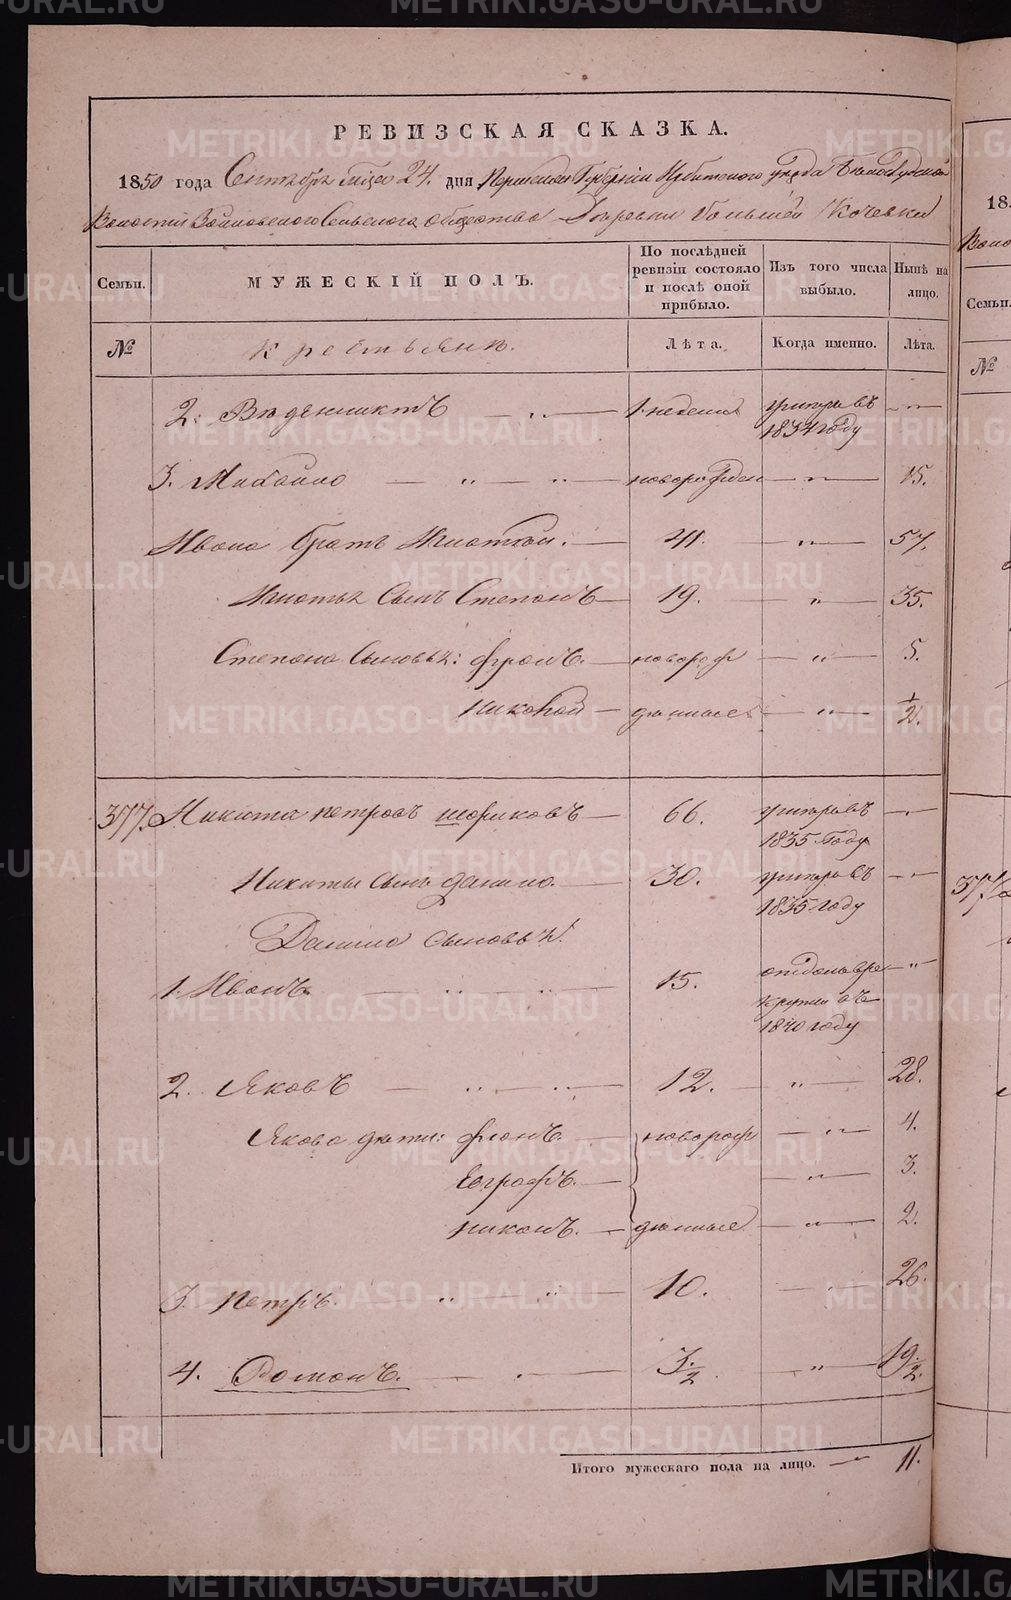 РЕВИЗСКАЯ СКАЗКА.
1850 года Сентября мсца 24. дня Пермской Губернии Ирбитского уезда Белослудской
Волости Зайковского Сельского общества Деревни Большей Кочевки
Семьи. МУЖЕСКІЙ ПОЛЪ. По послѣдней ревизіи состояло и послѣ оной прибыло. Изъ того числа выбыло. Нынѣ на лицо.
№ крестьяне. Лѣта. Когда именно. Лѣта.
2. Ведениктъ — „ — 1. недели умеръ въ 1834 году — „ —
3. Михайло — „ — „ — новорожден — „ — 15.
Ивана братъ Игнатий. — 41. — „ — 57.
Игнатья Сынъ Степанъ — 19. — „ — 35.
Степана Сыновья: Фролъ. — новорож — „ — 5.
Никофой — денные — „ — 1/2.
377. Никита петровъ шориковъ — 66. умеръ въ 1835 Году — „ —
Никиты сынъ данило. — 30. умеръ въ 1835 году — „ —
Данила сыновья:
1. Иванъ — „ — „ — 15. отданъ в рекруты въ 1840 году — „
2. Яковъ — „ — „ — 12. — „ — 28.
Якова дети: Фролъ. — новорож — „ — 4.
Евграфъ. — — „ — 3.
Никонъ. — денные — „ — 2.
3. Петръ. „ — „ — 10. — „ — 26.
4. Романъ. — „ — 3 1/2. — „ — 19 1/2.
Итого мужескаго пола на лицо. — 11.
18
Семьи.
№
METRIKI.GASO-URAL.RU